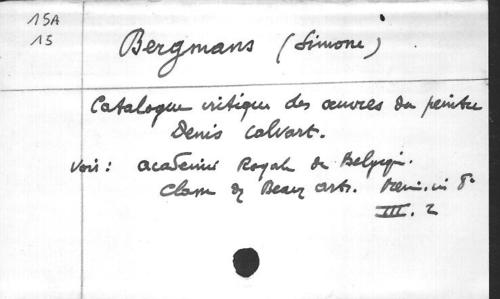 15A
15
Bergmans (Simone)
Catalogue critique des œuvres du peintre
Denis Calvart.
Voir : Académie Royale de Belgique.
Classe des Beaux Arts. Mém. in 8°
III. 2